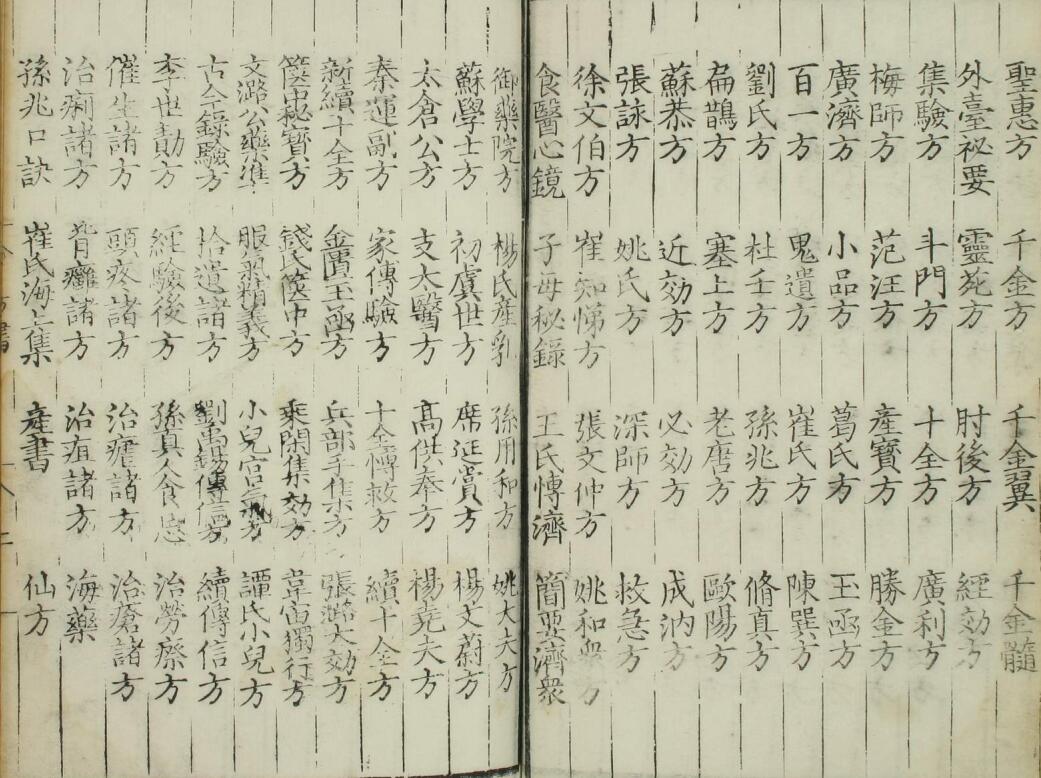 聖惠方 千金方 千金翼 千金髓
外臺祕要 靈苑方 肘後方 經効方
集驗方 斗門方 十全方 廣利方
梅師方 范汪方 產寶方 勝金方
廣濟方 小品方 葛氏方 玉函方
百一方 鬼遺方 崔氏方 陳巽方
劉氏方 杜壬方 孫兆方 脩真方
扁鵲方 塞上方 老唐方 歐陽方
蘇恭方 近効方 必効方 成汭方
張詠方 姚氏方 深師方 救急方
徐文伯方 崔知悌方 張文仲方 姚和衆方
食醫心鏡 子母秘錄 王氏博濟 簡要濟衆
御藥院方 楊氏產乳 孫用和方 姚大夫方
蘇學士方 初虞世方 席延賞方 楊文蔚方
太倉公方 支太醫方 高供奉方 楊堯夫方
秦運副方 家傳驗方 十全博救方 續十全方
新續十全方 金匱玉函方 兵部手集方 張潞大効方
篋中祕寶方 錢氏篋中方 乘閑集効方 韋宙獨行方
文潞公藥准 服氣精義方 小兒宮氣方 譚氏小兒方
古今錄驗方 拾遺諸方 劉禹錫傳信方 續傳信方
李世勣方 經驗後方 孫真人食忌 治勞瘵方
催生諸方 頭疼諸方 治瘧諸方 治瘡諸方
治痢諸方 背癰諸方 治疽諸方 海藥
孫兆口訣 崔氏海上集 產書 仙方